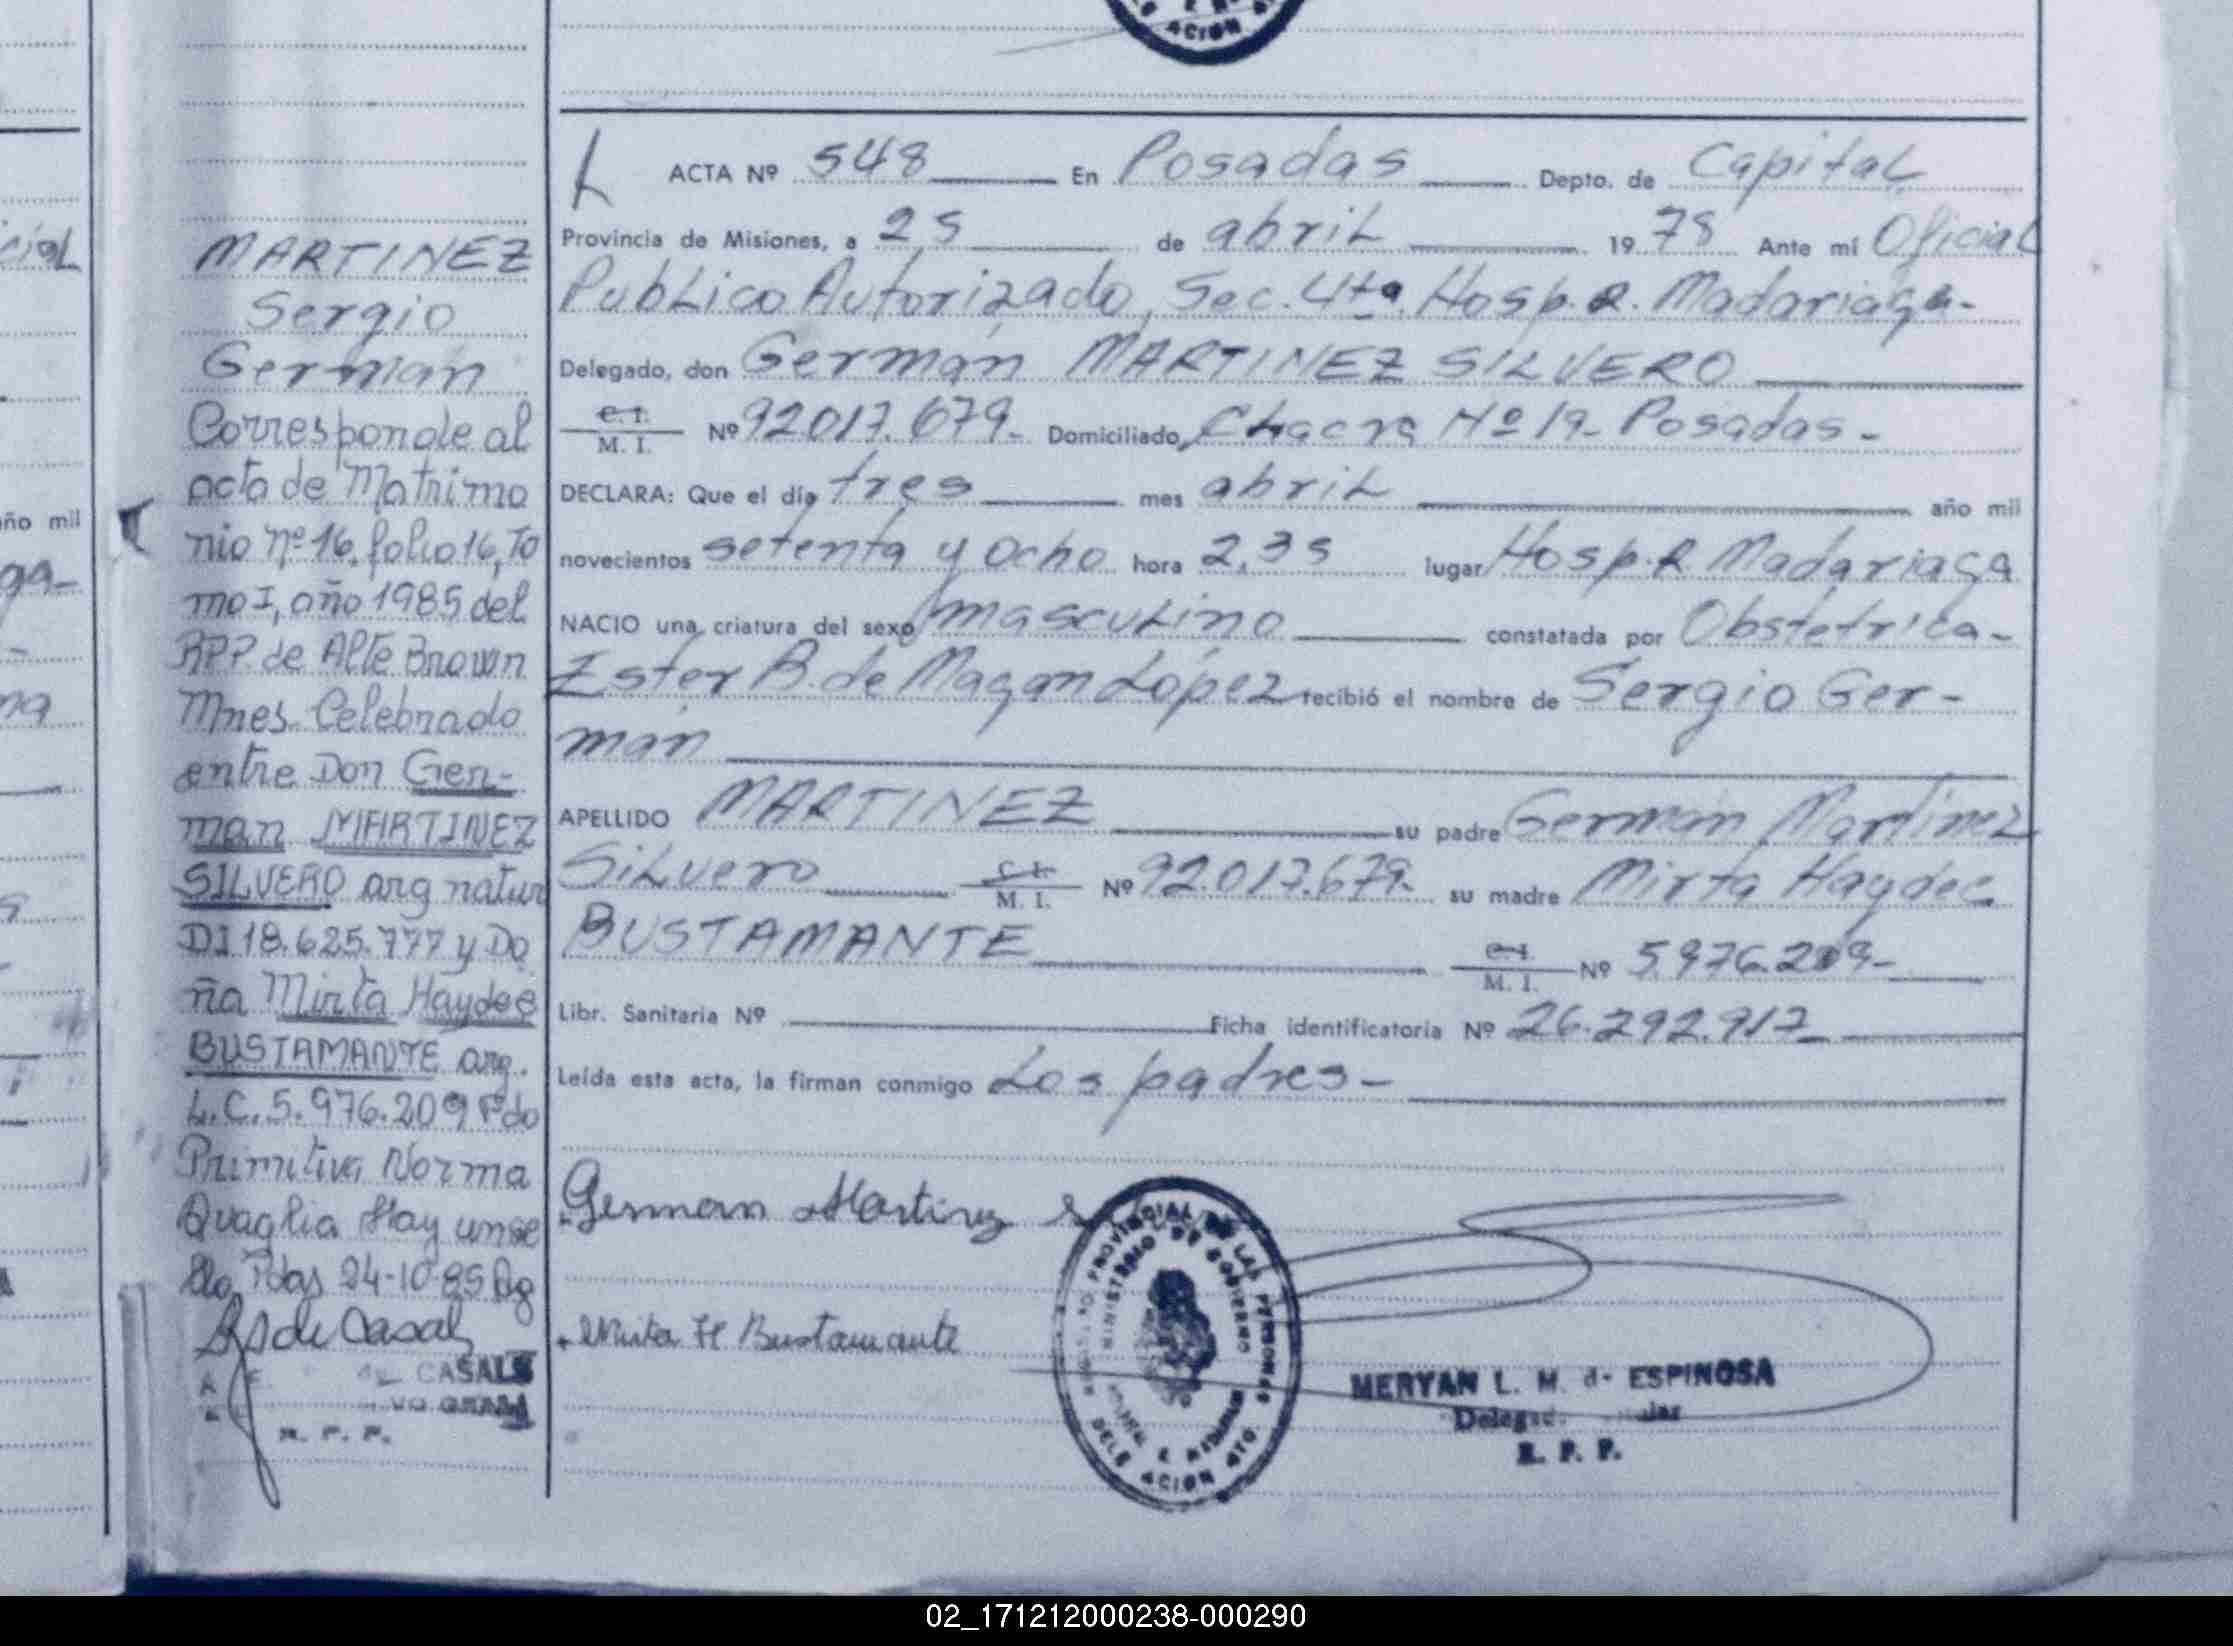 MARTINEZ
Sergio
Germán
Corresponde al
acta de Matrimo
nio nº 16, folio 16, To
mo I, año 1985 del
RPP. de Alte Brown
Mnes. Celebrado
entre Don Ger-
man MARTINEZ
SILVERO arg natur
DI 18.625.777 y Do
ña Mirta Haydeé
BUSTAMANTE arg.
L.C. 5.976.209 Fdo
Primitiva Norma
Quaglia Hay un se
llo Pdas 24-10-85
de Casals
CASALS
R. P. P.
ACTA Nº 548 En Posadas Depto. de Capital
Provincia de Misiones, a 25 de abril 1978 Ante mí Oficial
Publico Autorizado, Sec. 4ta. Hosp. R. Madariaga-
Delegado, don Germán MARTINEZ SILVERO
C. I.
M. I. Nº 92017.679- Domiciliado Chacra Nº 19- Posadas-
DECLARA: Que el día tres mes abril año mil
novecientos setenta y ocho hora 2,35 lugar Hosp. R Madariaga
NACIO una criatura del sexo masculino constatada por Obstetrica-
Ester B. de Magan López recibió el nombre de Sergio Ger-
mán
APELLIDO MARTINEZ su padre Germán Martinez
Silvero C. I. M. I. Nº 92.017.679- su madre Mirta Haydee
BUSTAMANTE C. I. M. I. Nº 5.976.209-
Libr. Sanitaria Nº Ficha identificatoria Nº 26.292.917
Leída esta acta, la firman conmigo Los padres-
German Martinez S
Mirta H Bustamante
MERYAN L. M. de ESPINOSA
R. P. P.
02_171212000238-000290